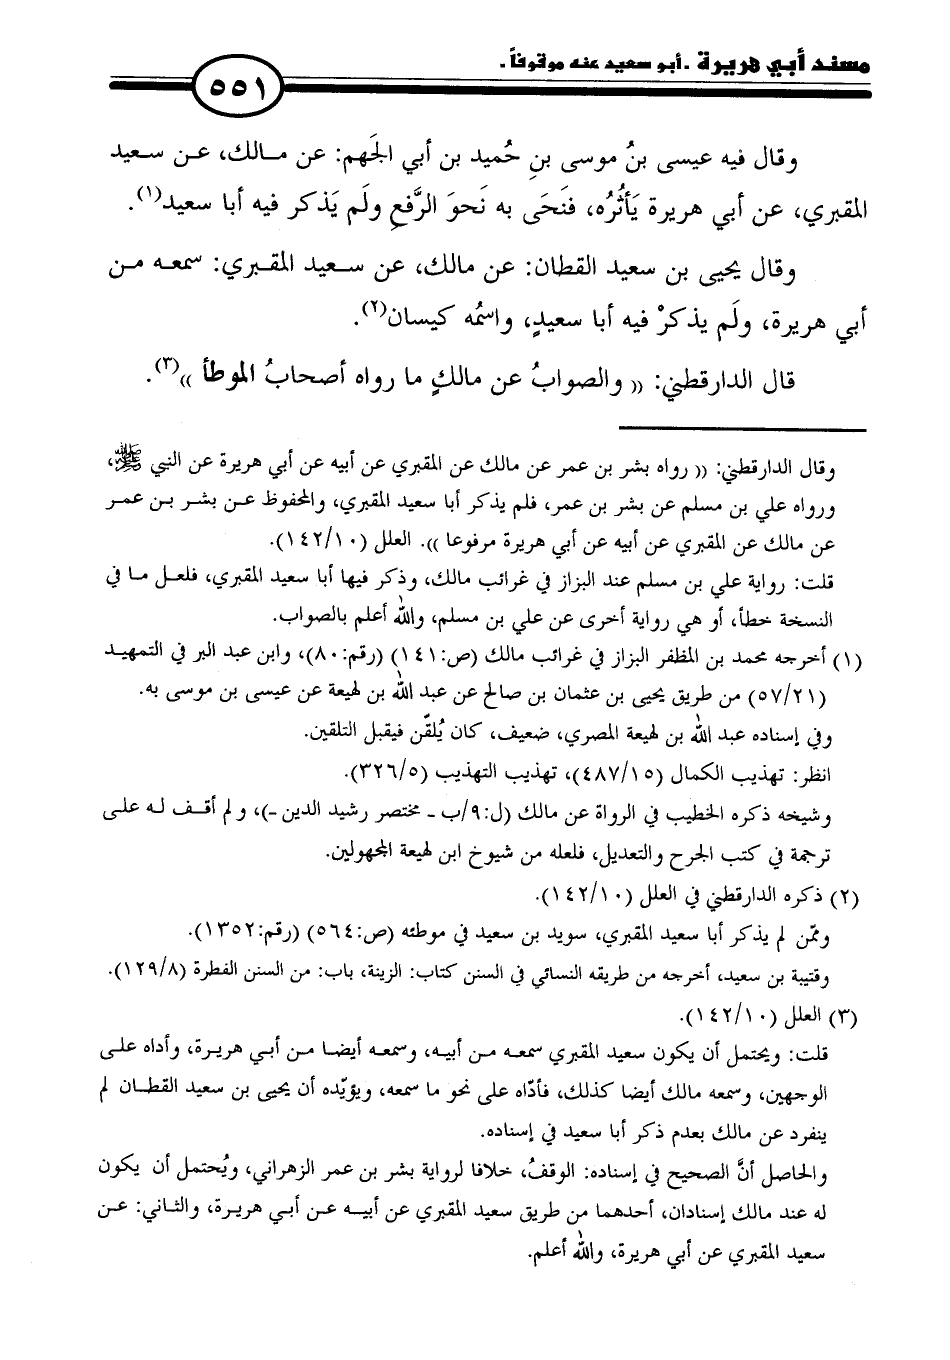 مسند أبي هريرة - أبو سعيد عنه موقوفاً -
٥٥١
وقال فيه عيسى بنُ موسى بنِ حُميد بن أبي الجَهم: عن مالك، عن سعيد
المقبري، عن أبي هريرة يَأثُرُه، فَنَحَى به نَحوَ الرَّفعِ ولَم يَذكر فيه أبا سعيد(١).
وقال يحيى بن سعيد القطان: عن مالك، عن سعيد المقبري: سمعه من
أبي هريرة، ولَم يذكرْ فيه أبا سعيدٍ، واسمُه كيسان(٢).
قال الدارقطني: (( والصوابُ عن مالكٍ ما رواه أصحابُ الموطأ ))(٣).
وقال الدارقطني: (( رواه بشر بن عمر عن مالك عن المقبري عن أبيه عن أبي هريرة عن النبي ﷺ،
ورواه علي بن مسلم عن بشر بن عمر، فلم يذكر أبا سعيد المقبري، والمحفوظ عن بشر بن عمر
عن مالك عن المقبري عن أبيه عن أبي هريرة مرفوعا )). العلل (١٤٢/١٠).
قلت: رواية علي بن مسلم عند البزاز في غرائب مالك، وذكر فيها أبا سعيد المقبري، فلعل ما في
النسخة خطأ، أو هي رواية أخرى عن علي بن مسلم، والله أعلم بالصواب.
(١) أخرجه محمد بن المظفر البزاز في غرائب مالك (ص:١٤١) (رقم:٨٠)، وابن عبد البر في التمهيد
(٥٧/٢١) من طريق يحيى بن عثمان بن صالح عن عبد الله بن لهيعة عن عيسى بن موسى به.
وفي إسناده عبد الله بن لهيعة المصري، ضعيف، كان يُلقّن فيقبل التلقين.
انظر: تهذيب الكمال (٤٨٧/١٥)، تهذيب التهذيب (٣٢٦/٥).
وشيخه ذكره الخطيب في الرواة عن مالك (ل:٩/ب - مختصر رشيد الدين -)، ولم أقف له على
ترجمة في كتب الجرح والتعديل، فلعله من شيوخ ابن لهيعة المجهولين.
(٢) ذكره الدارقطني في العلل (١٤٢/١٠).
وممّن لم يذكر أبا سعيد المقبري، سويد بن سعيد في موطئه (ص:٥٦٤) (رقم:١٣٥٢).
وقتيبة بن سعيد، أخرجه من طريقه النسائي في السنن كتاب: الزينة، باب: من السنن الفطرة (١٢٩/٨).
(٣) العلل (١٤٢/١٠).
قلت: ويحتمل أن يكون سعيد المقبري سمعه من أبيه، وسمعه أيضا من أبي هريرة، وأداه على
الوجهين، وسمعه مالك أيضا كذلك، فأدّاه على نحو ما سمعه، ويؤيّده أن يحيى بن سعيد القطان لم
ينفرد عن مالك بعدم ذكر أبا سعيد في إسناده.
والحاصل أنَّ الصحيح في إسناده: الوقفُ، خلافا لرواية بشر بن عمر الزهراني، ويُحتمل أن يكون
له عند مالك إسنادان، أحدهما من طريق سعيد المقبري عن أبيه عن أبي هريرة، والثاني: عن
سعيد المقبري عن أبي هريرة، والله أعلم.